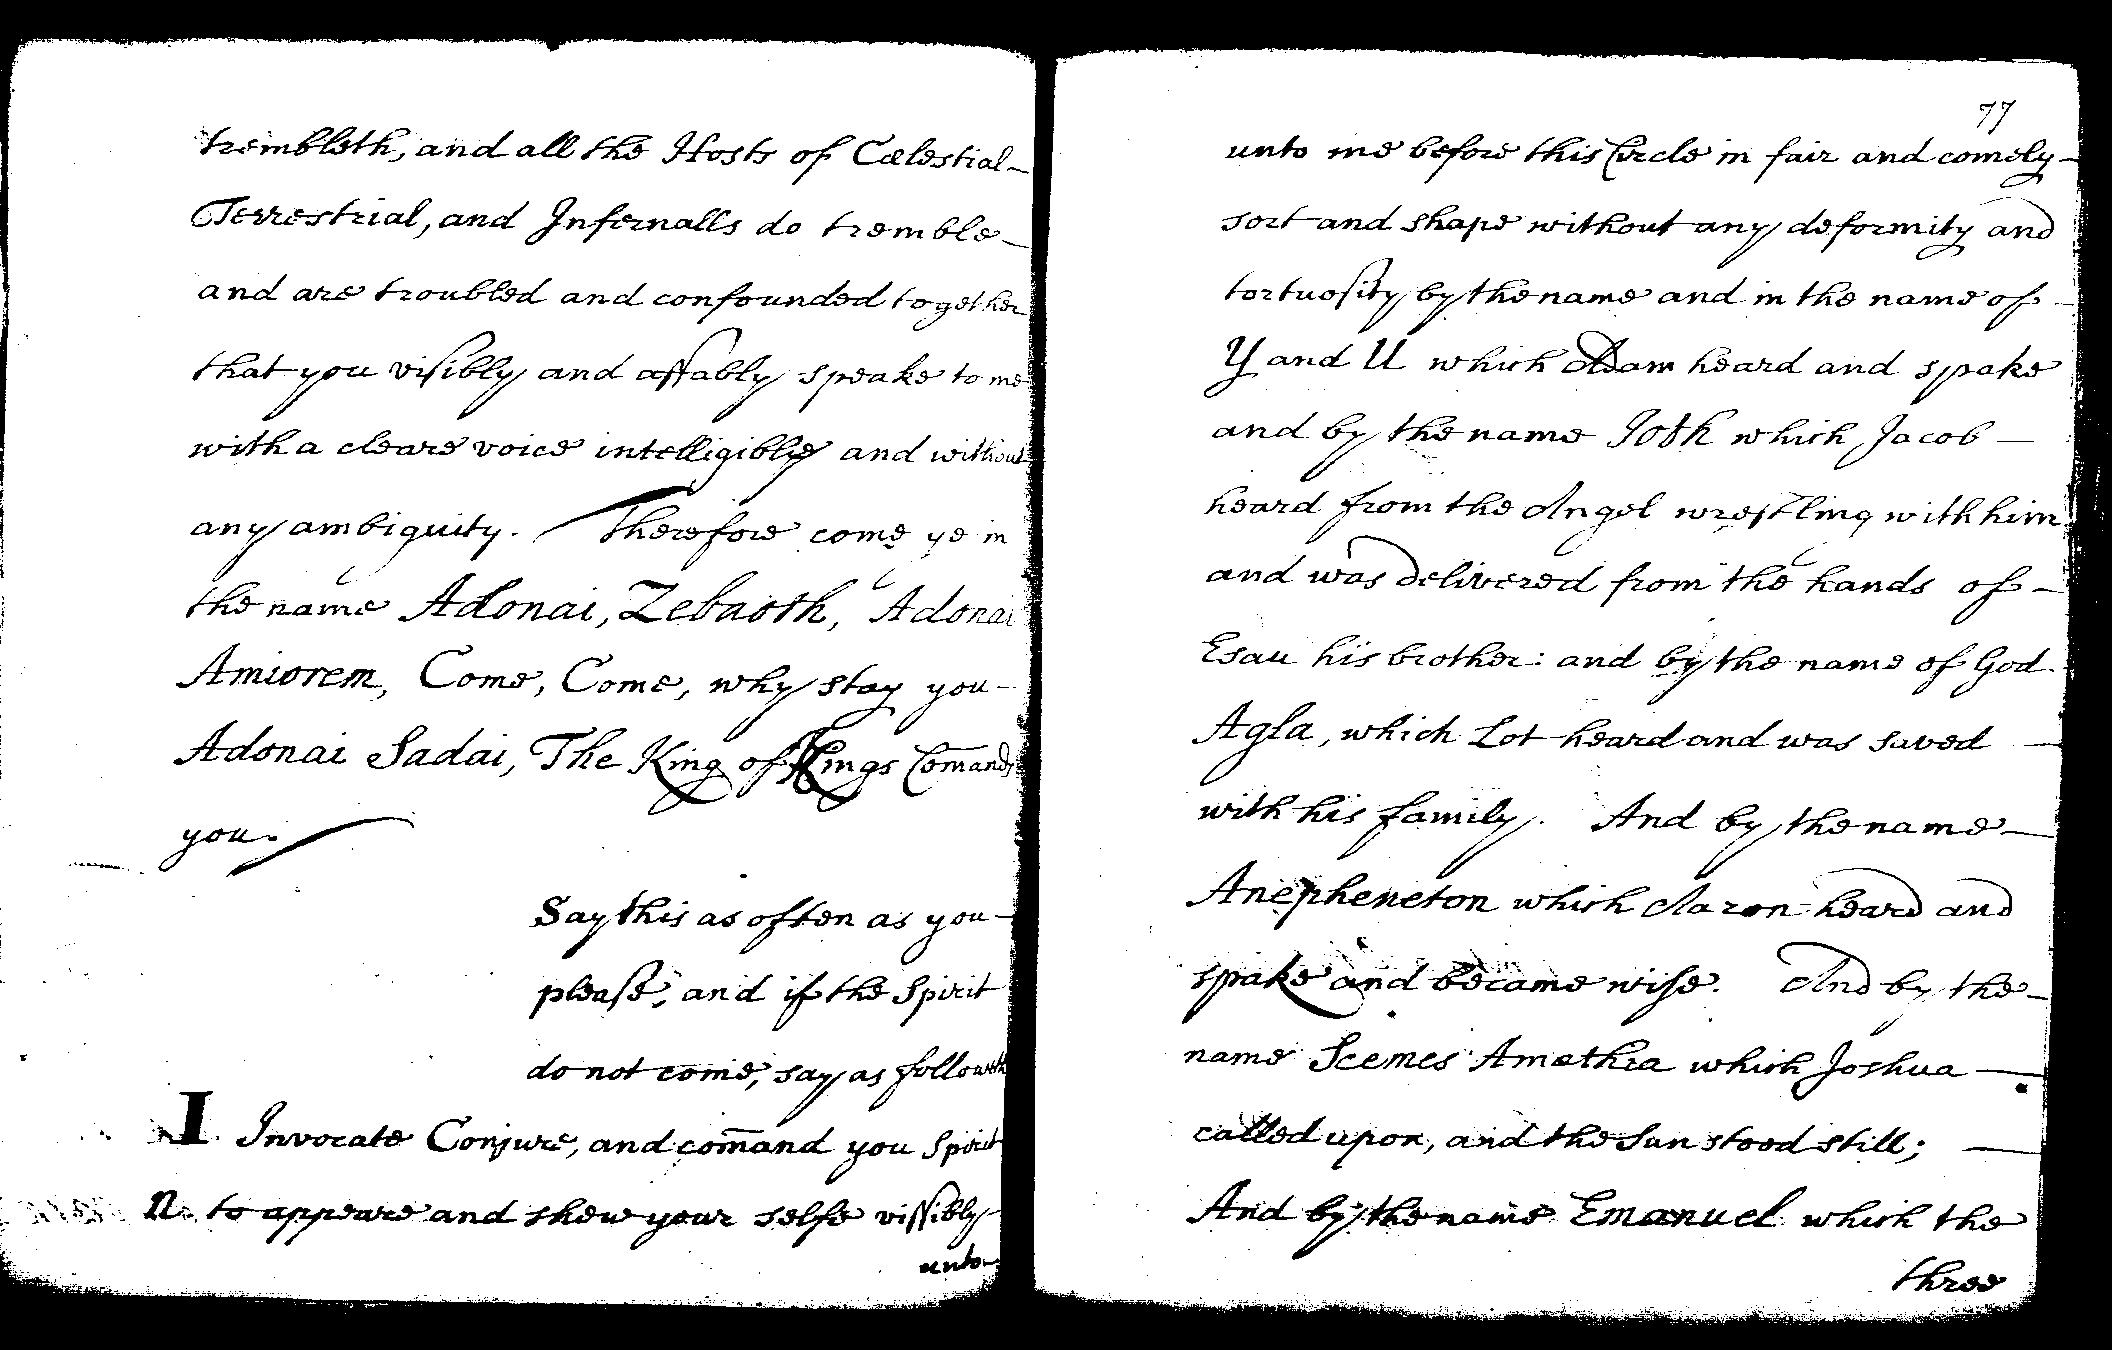 trembleth, and all the Hosts of Cælestial
Terrestrial, and Infernalls do tremble
and are troubled and confounded together
that you visibly and affably speake to me
with a cleare voice intelligibly and without
any ambiguity. Therefore come ye in
the name Adonai, Zebaoth, Adonai
Amiorem, Come, Come, why stay you
Adonai Sadai, The King of Kings Comands
you.
Say this as often as you
please, and if the Spirit
do not come, say as followeth
I Invocate Conjure, and com̄and you Spirit
N. to appeare and shew your selfe vissibly
unto
77
unto me before this Circle in fair and comely
sort and shape without any deformity and
tortuosity by the name and in the name of
Y and U which Adam heard and spake
and by the name Joth which Jacob
heard from the Angel wrestling with him
and was delivered from the hands of
Esau his brother: and by the name of God
Agla, which Lot heard and was saved
with his family. And by the name
Anepheneton which Aaron heard and
spake and became wise. And by the
name Scemes Amathia which Joshua
called upon, and the Sun stood still;
And by the name Emanuel which the
three